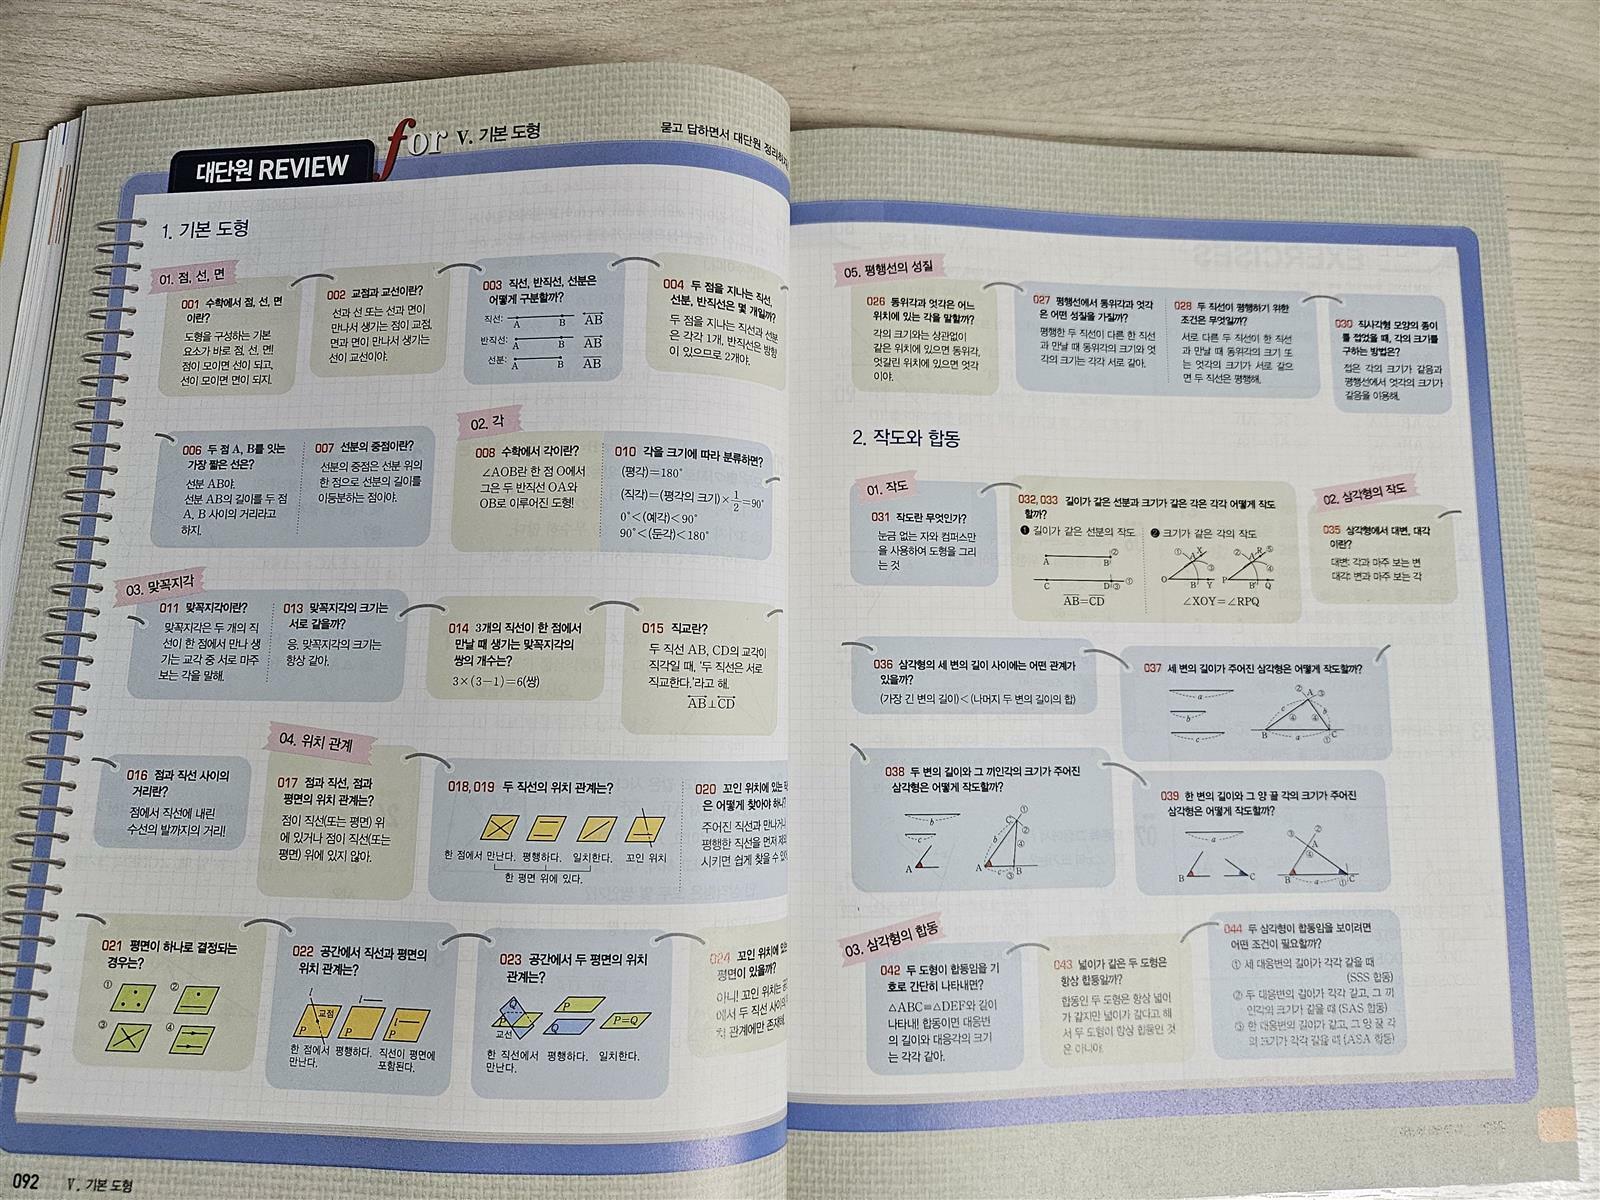 대단원 REVIEW
for V. 기본 도형
묻고 답하면서 대단원 정리하자
1. 기본 도형
01. 점, 선, 면
001 수학에서 점, 선, 면
이란?
도형을 구성하는 기본
요소가 바로 점, 선, 면!
점이 모이면 선이 되고,
선이 모이면 면이 되지.
002 교점과 교선이란?
선과 선 또는 선과 면이
만나서 생기는 점이 교점,
면과 면이 만나서 생기는
선이 교선이야.
003 직선, 반직선, 선분은
어떻게 구분할까?
직선: A B AB
반직선: A B AB
선분: A B AB
004 두 점을 지나는 직선,
선분, 반직선은 몇 개일까?
두 점을 지나는 직선과 선분
은 각각 1개, 반직선은 방향
이 있으므로 2개야.
006 두 점 A, B를 잇는
가장 짧은 선은?
선분 AB야.
선분 AB의 길이를 두 점
A, B 사이의 거리라고
하지.
007 선분의 중점이란?
선분의 중점은 선분 위의
한 점으로 선분의 길이를
이등분하는 점이야.
02. 각
008 수학에서 각이란?
∠AOB란 한 점 O에서
그은 두 반직선 OA와
OB로 이루어진 도형!
010 각을 크기에 따라 분류하면?
(평각)=180°
(직각)=(평각의 크기)×1/2=90°
0°<(예각)<90°
90°<(둔각)<180°
03. 맞꼭지각
011 맞꼭지각이란?
맞꼭지각은 두 개의 직
선이 한 점에서 만나 생
기는 교각 중 서로 마주
보는 각을 말해.
013 맞꼭지각의 크기는
서로 같을까?
응. 맞꼭지각의 크기는
항상 같아.
014 3개의 직선이 한 점에서
만날 때 생기는 맞꼭지각의
쌍의 개수는?
3×(3−1)=6(쌍)
015 직교란?
두 직선 AB, CD의 교각이
직각일 때, '두 직선은 서로
직교한다.'라고 해.
AB⊥CD
016 점과 직선 사이의
거리란?
점에서 직선에 내린
수선의 발까지의 거리!
04. 위치 관계
017 점과 직선, 점과
평면의 위치 관계는?
점이 직선(또는 평면) 위
에 있거나 점이 직선(또는
평면) 위에 있지 않아.
018, 019 두 직선의 위치 관계는?
한 점에서 만난다. 평행하다. 일치한다. 꼬인 위치
한 평면 위에 있다.
020 꼬인 위치에 있는
은 어떻게 찾아야 하나?
주어진 직선과 만나거나
평행한 직선을 먼저 제외
시키면 쉽게 찾을 수 있
021 평면이 하나로 결정되는
경우는?
① ②
③ ④
022 공간에서 직선과 평면의
위치 관계는?
l 교점 P l P l P
한 점에서 평행하다. 직선이 평면에
만난다. 포함된다.
023 공간에서 두 평면의 위치
관계는?
Q P 교선 P Q P=Q
한 직선에서 평행하다. 일치한다.
만난다.
024 꼬인 위치에 있는
평면이 있을까?
아니! 꼬인 위치는 공
에서 두 직선 사이의
치 관계에만 존재해.
092 V. 기본 도형
05. 평행선의 성질
026 동위각과 엇각은 어느
위치에 있는 각을 말할까?
각의 크기와는 상관없이
같은 위치에 있으면 동위각,
엇갈린 위치에 있으면 엇각
이야.
027 평행선에서 동위각과 엇각
은 어떤 성질을 가질까?
평행한 두 직선이 다른 한 직선
과 만날 때 동위각의 크기와 엇
각의 크기는 각각 서로 같아.
028 두 직선이 평행하기 위한
조건은 무엇일까?
서로 다른 두 직선이 한 직선
과 만날 때 동위각의 크기 또
는 엇각의 크기가 서로 같으
면 두 직선은 평행해.
030 직사각형 모양의 종이
를 접었을 때, 각의 크기를
구하는 방법은?
접은 각의 크기가 같음과
평행선에서 엇각의 크기가
같음을 이용해.
2. 작도와 합동
01. 작도
031 작도란 무엇인가?
눈금 없는 자와 컴퍼스만
을 사용하여 도형을 그리
는 것
032, 033 길이가 같은 선분과 크기가 같은 각은 각각 어떻게 작도
할까?
❶ 길이가 같은 선분의 작도
A B ②
C D ③ ①
AB=CD
❷ 크기가 같은 각의 작도
① A X ③ O B Y ② A' R ⑤ ④ P B' Q
∠XOY=∠RPQ
02. 삼각형의 작도
035 삼각형에서 대변, 대각
이란?
대변: 각과 마주 보는 변
대각: 변과 마주 보는 각
036 삼각형의 세 변의 길이 사이에는 어떤 관계가
있을까?
(가장 긴 변의 길이)<(나머지 두 변의 길이의 합)
037 세 변의 길이가 주어진 삼각형은 어떻게 작도할까?
a b c
② A ③ c ④ ④ b B a ① C
038 두 변의 길이와 그 끼인각의 크기가 주어진
삼각형은 어떻게 작도할까?
b c A
① C ② b ④ A c ③ B
039 한 변의 길이와 그 양 끝 각의 크기가 주어진
삼각형은 어떻게 작도할까?
a B C
③ ② A ④ B a ① C
03. 삼각형의 합동
042 두 도형이 합동임을 기
호로 간단히 나타내면?
△ABC≡△DEF와 같이
나타내! 합동이면 대응변
의 길이와 대응각의 크기
는 각각 같아.
043 넓이가 같은 두 도형은
항상 합동일까?
합동인 두 도형은 항상 넓이
가 같지만 넓이가 같다고 해
서 두 도형이 항상 합동인 것
은 아니야.
044 두 삼각형이 합동임을 보이려면
어떤 조건이 필요할까?
① 세 대응변의 길이가 각각 같을 때
(SSS 합동)
② 두 대응변의 길이가 각각 같고, 그 끼
인각의 크기가 같을 때 (SAS 합동)
③ 한 대응변의 길이가 같고, 그 양 끝 각
의 크기가 각각 같을 때 (ASA 합동)